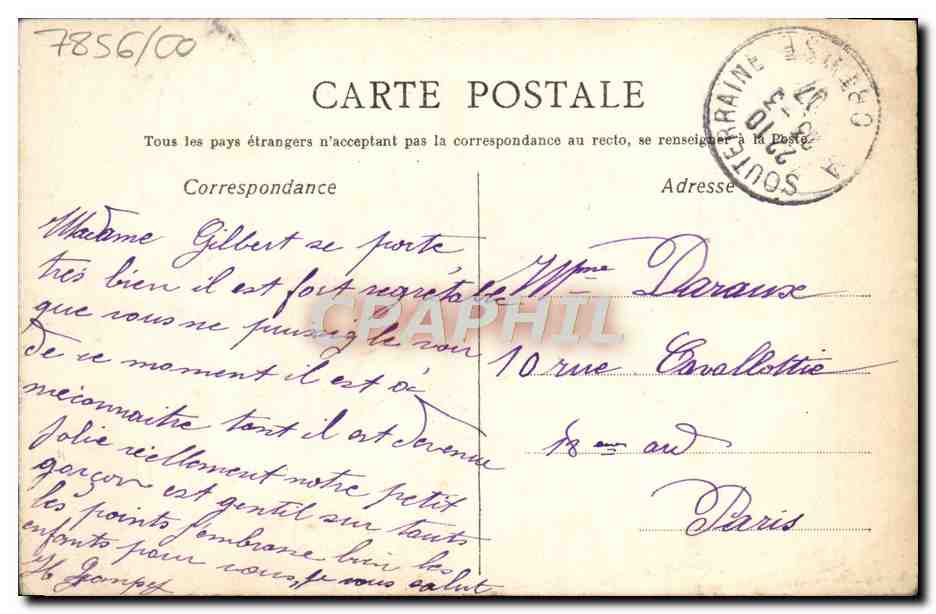 7856/00
CARTE POSTALE
Tous les pays étrangers n'acceptant pas la correspondance au recto, se renseigner à la Poste.
Correspondance
Madame Gilbert se porte
très bien il est fort regrétable
que vous ne puissiez le voir
de ce moment il est à
méconnaitre tant il est devenue
jolie réellement notre petit
garçon est gentil sur touts
les points j'embrasse bien les
enfants pour vous, je vous salut
CPAPHIL
Adresse
Mme Daraux
10 rue Cavallottie
18 ard
Paris
LA SOUTERRAINE CREUSE
22 10